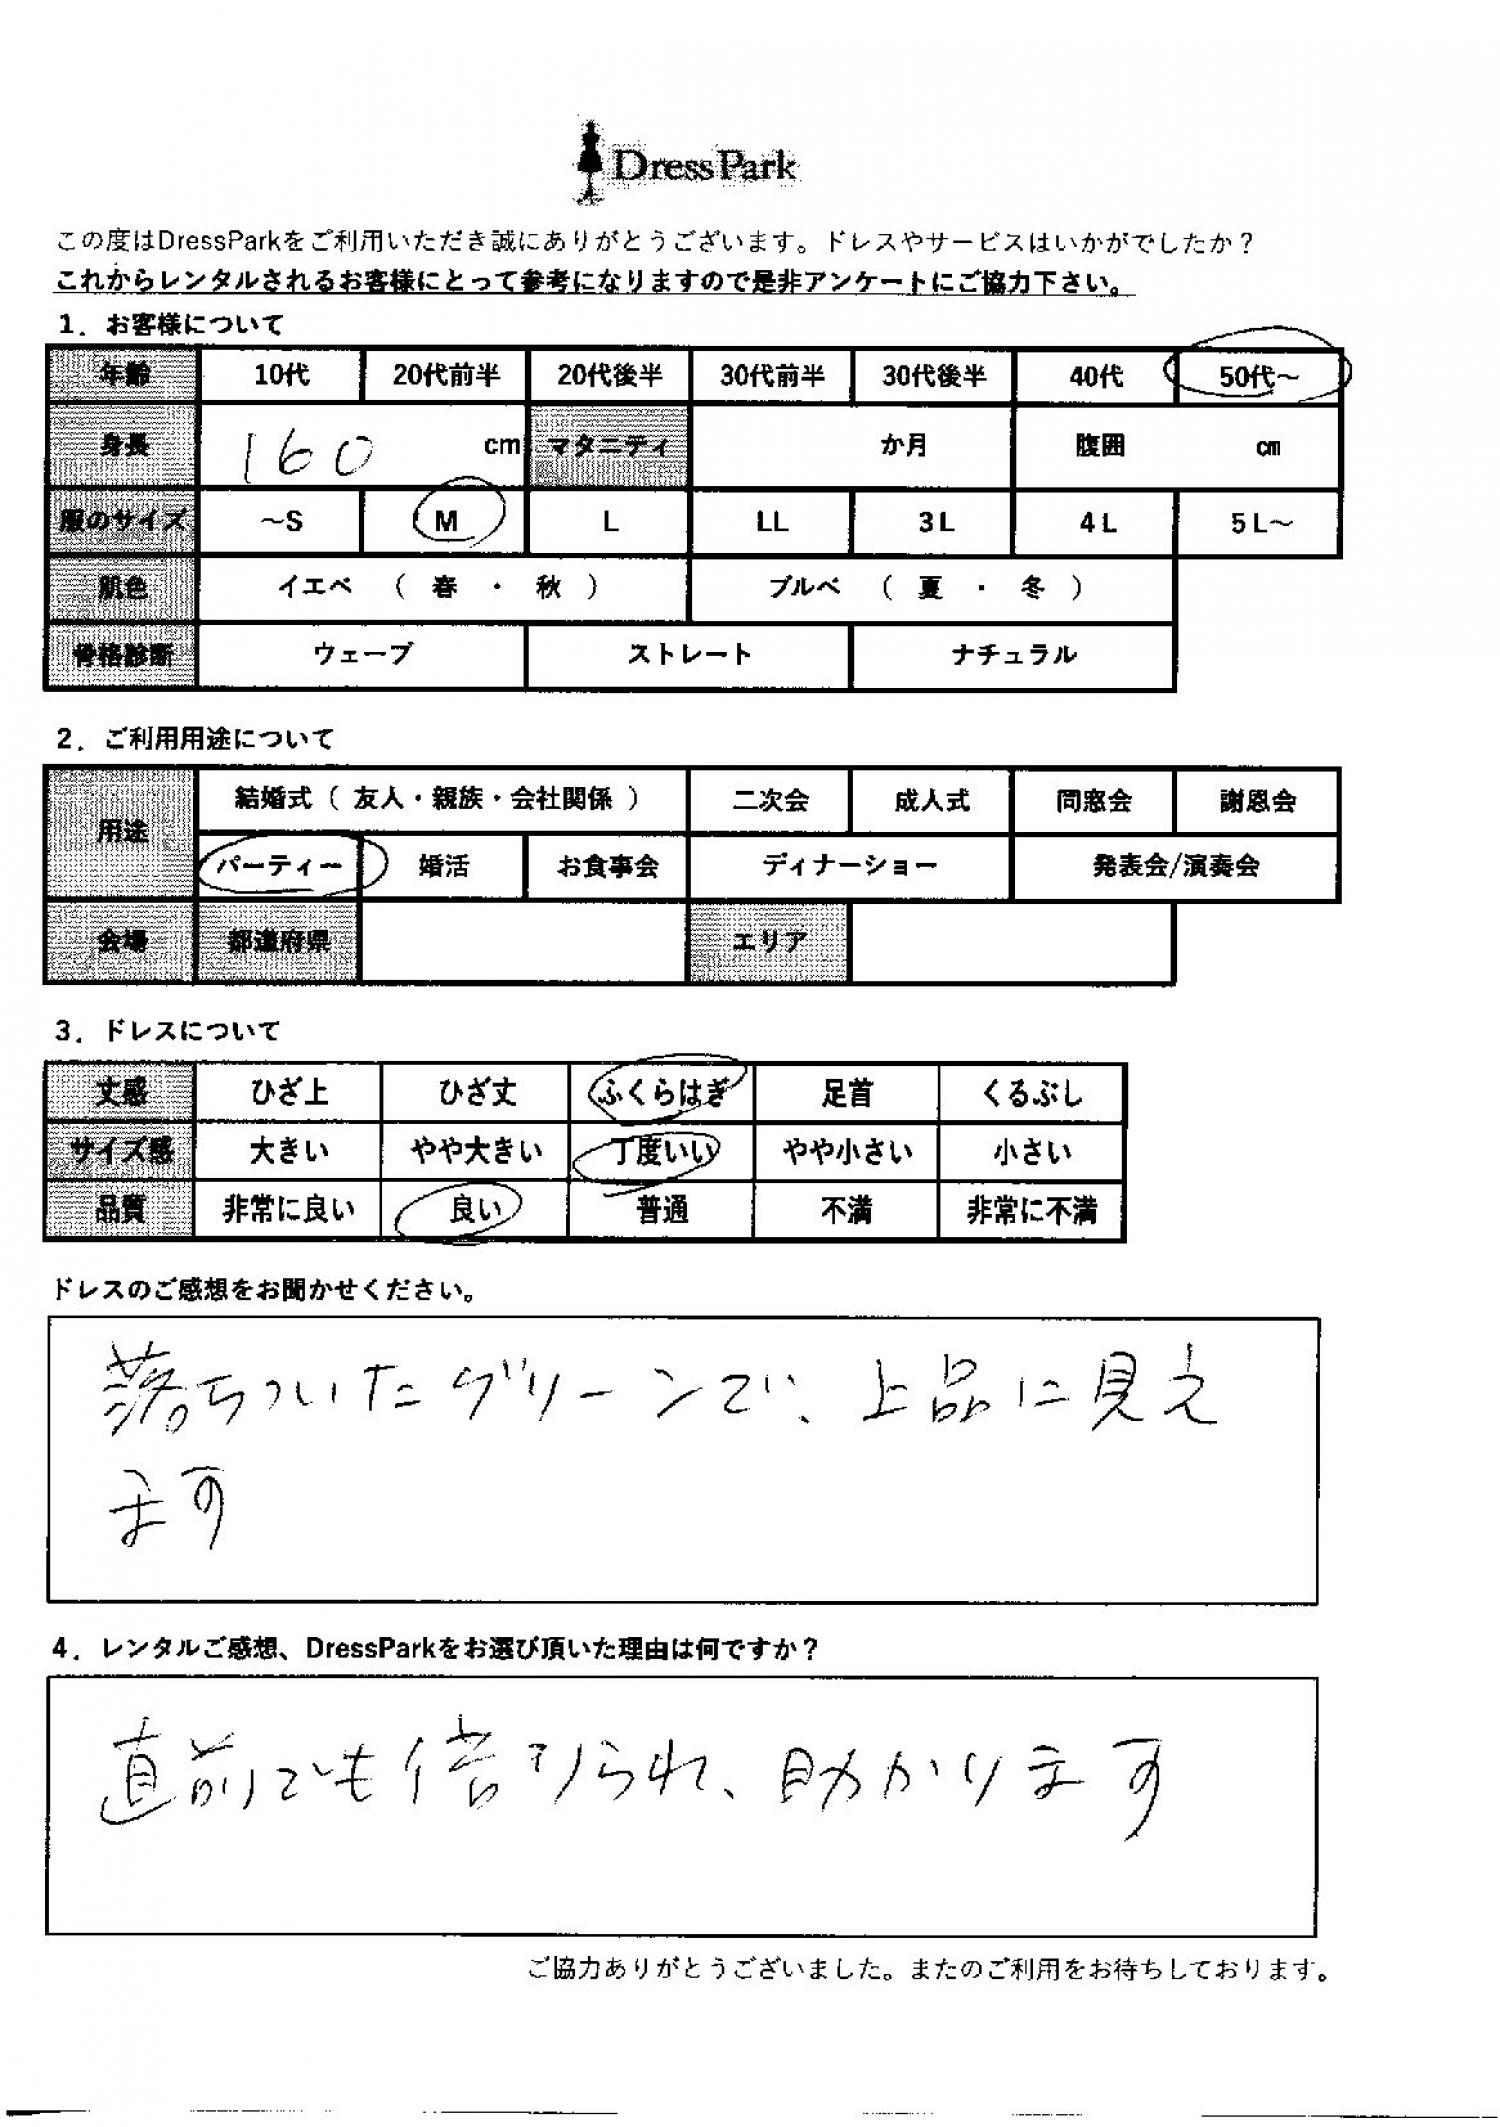 DressPark
この度はDressParkをご利用いただき誠にありがとうございます。ドレスやサービスはいかがでしたか？
これからレンタルされるお客様にとって参考になりますので是非アンケートにご協力下さい。
1．お客様について
年齢 10代 20代前半 20代後半 30代前半 30代後半 40代 50代～
身長 160 cm マタニティ か月 腹囲 cm
服のサイズ ～S M L LL 3L 4L 5L～
肌色 イエベ （ 春 ・ 秋 ） ブルベ （ 夏 ・ 冬 ）
骨格診断 ウェーブ ストレート ナチュラル
2．ご利用用途について
用途 結婚式（ 友人・親族・会社関係 ） 二次会 成人式 同窓会 謝恩会
パーティー 婚活 お食事会 ディナーショー 発表会/演奏会
会場 都道府県 エリア
3．ドレスについて
丈感 ひざ上 ひざ丈 ふくらはぎ 足首 くるぶし
サイズ感 大きい やや大きい 丁度いい やや小さい 小さい
品質 非常に良い 良い 普通 不満 非常に不満
ドレスのご感想をお聞かせください。
落ちついたグリーンで、上品に見え
ます
4．レンタルご感想、DressParkをお選び頂いた理由は何ですか？
直前でも借りられ、助かります
ご協力ありがとうございました。またのご利用をお待ちしております。